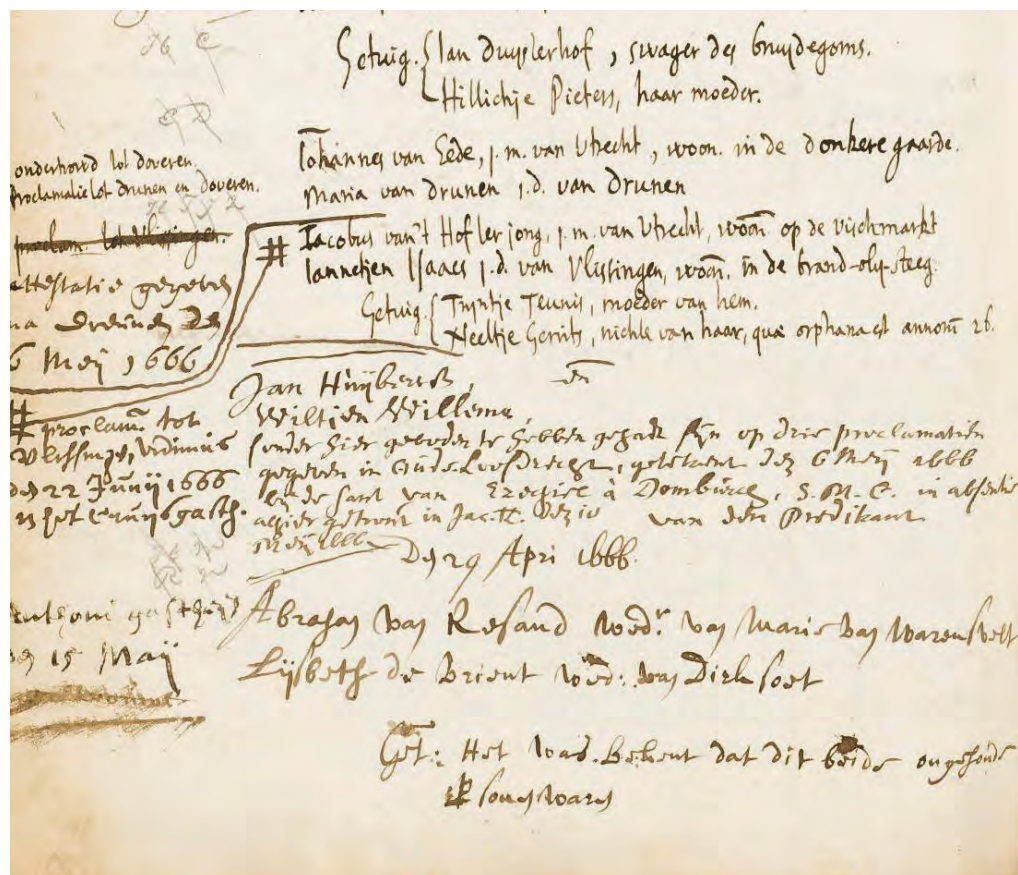 Getuig. Jan Duysterhof, swager des bruydegoms.
Hillichje Pieters, haar moeder.
onderhoord tot doveren.
proclamatie tot drunen en doveren.
Iohannes van Eede, j. m. van Utrecht, woon. in de donkere gaarde.
Maria van drunen j.d. van drunen
proclam. tot Vlissingen.
attestatie gegeven
na dreunen den
6 Meij 1666
# Iacobus van't Hof ler jong, j. m. van Utrecht, woon. op de vischmarkt
Iannetjen Isaacs j.d. van Vlissingen, woon. in de brand-oly-steeg.
Getuig. Tryntje Teunis, moeder van hem.
Neeltje Gerrits, nichte van haar, quæ orphana est annorum 26.
# proclam. tot
Vlessingen, vidimus
den 22 Junij 1666
in het Cruijsgasth.
Jan Huijberts, en
Wiltjen Willems,
sonder hier geboden te hebben gehadt sijn op drie proclamatien
gegeven in Oude Loosdrecht, getekent den 6 Meij 1666
bij de hant van Ezechiel à Domburch, S. M. C. in absentie
alhier getrout in Jac. K. den 10 van den Predikant
Meij 1666
Den 29 Apri 1666.
Anthoni gasthuis
den 15 Maij
Abraham van Resand wedr. van Maria van Warensvelt
Lijsbeth de Brient wed: van Dirk soet
Get: Het was bekent dat dit beide ongesonde